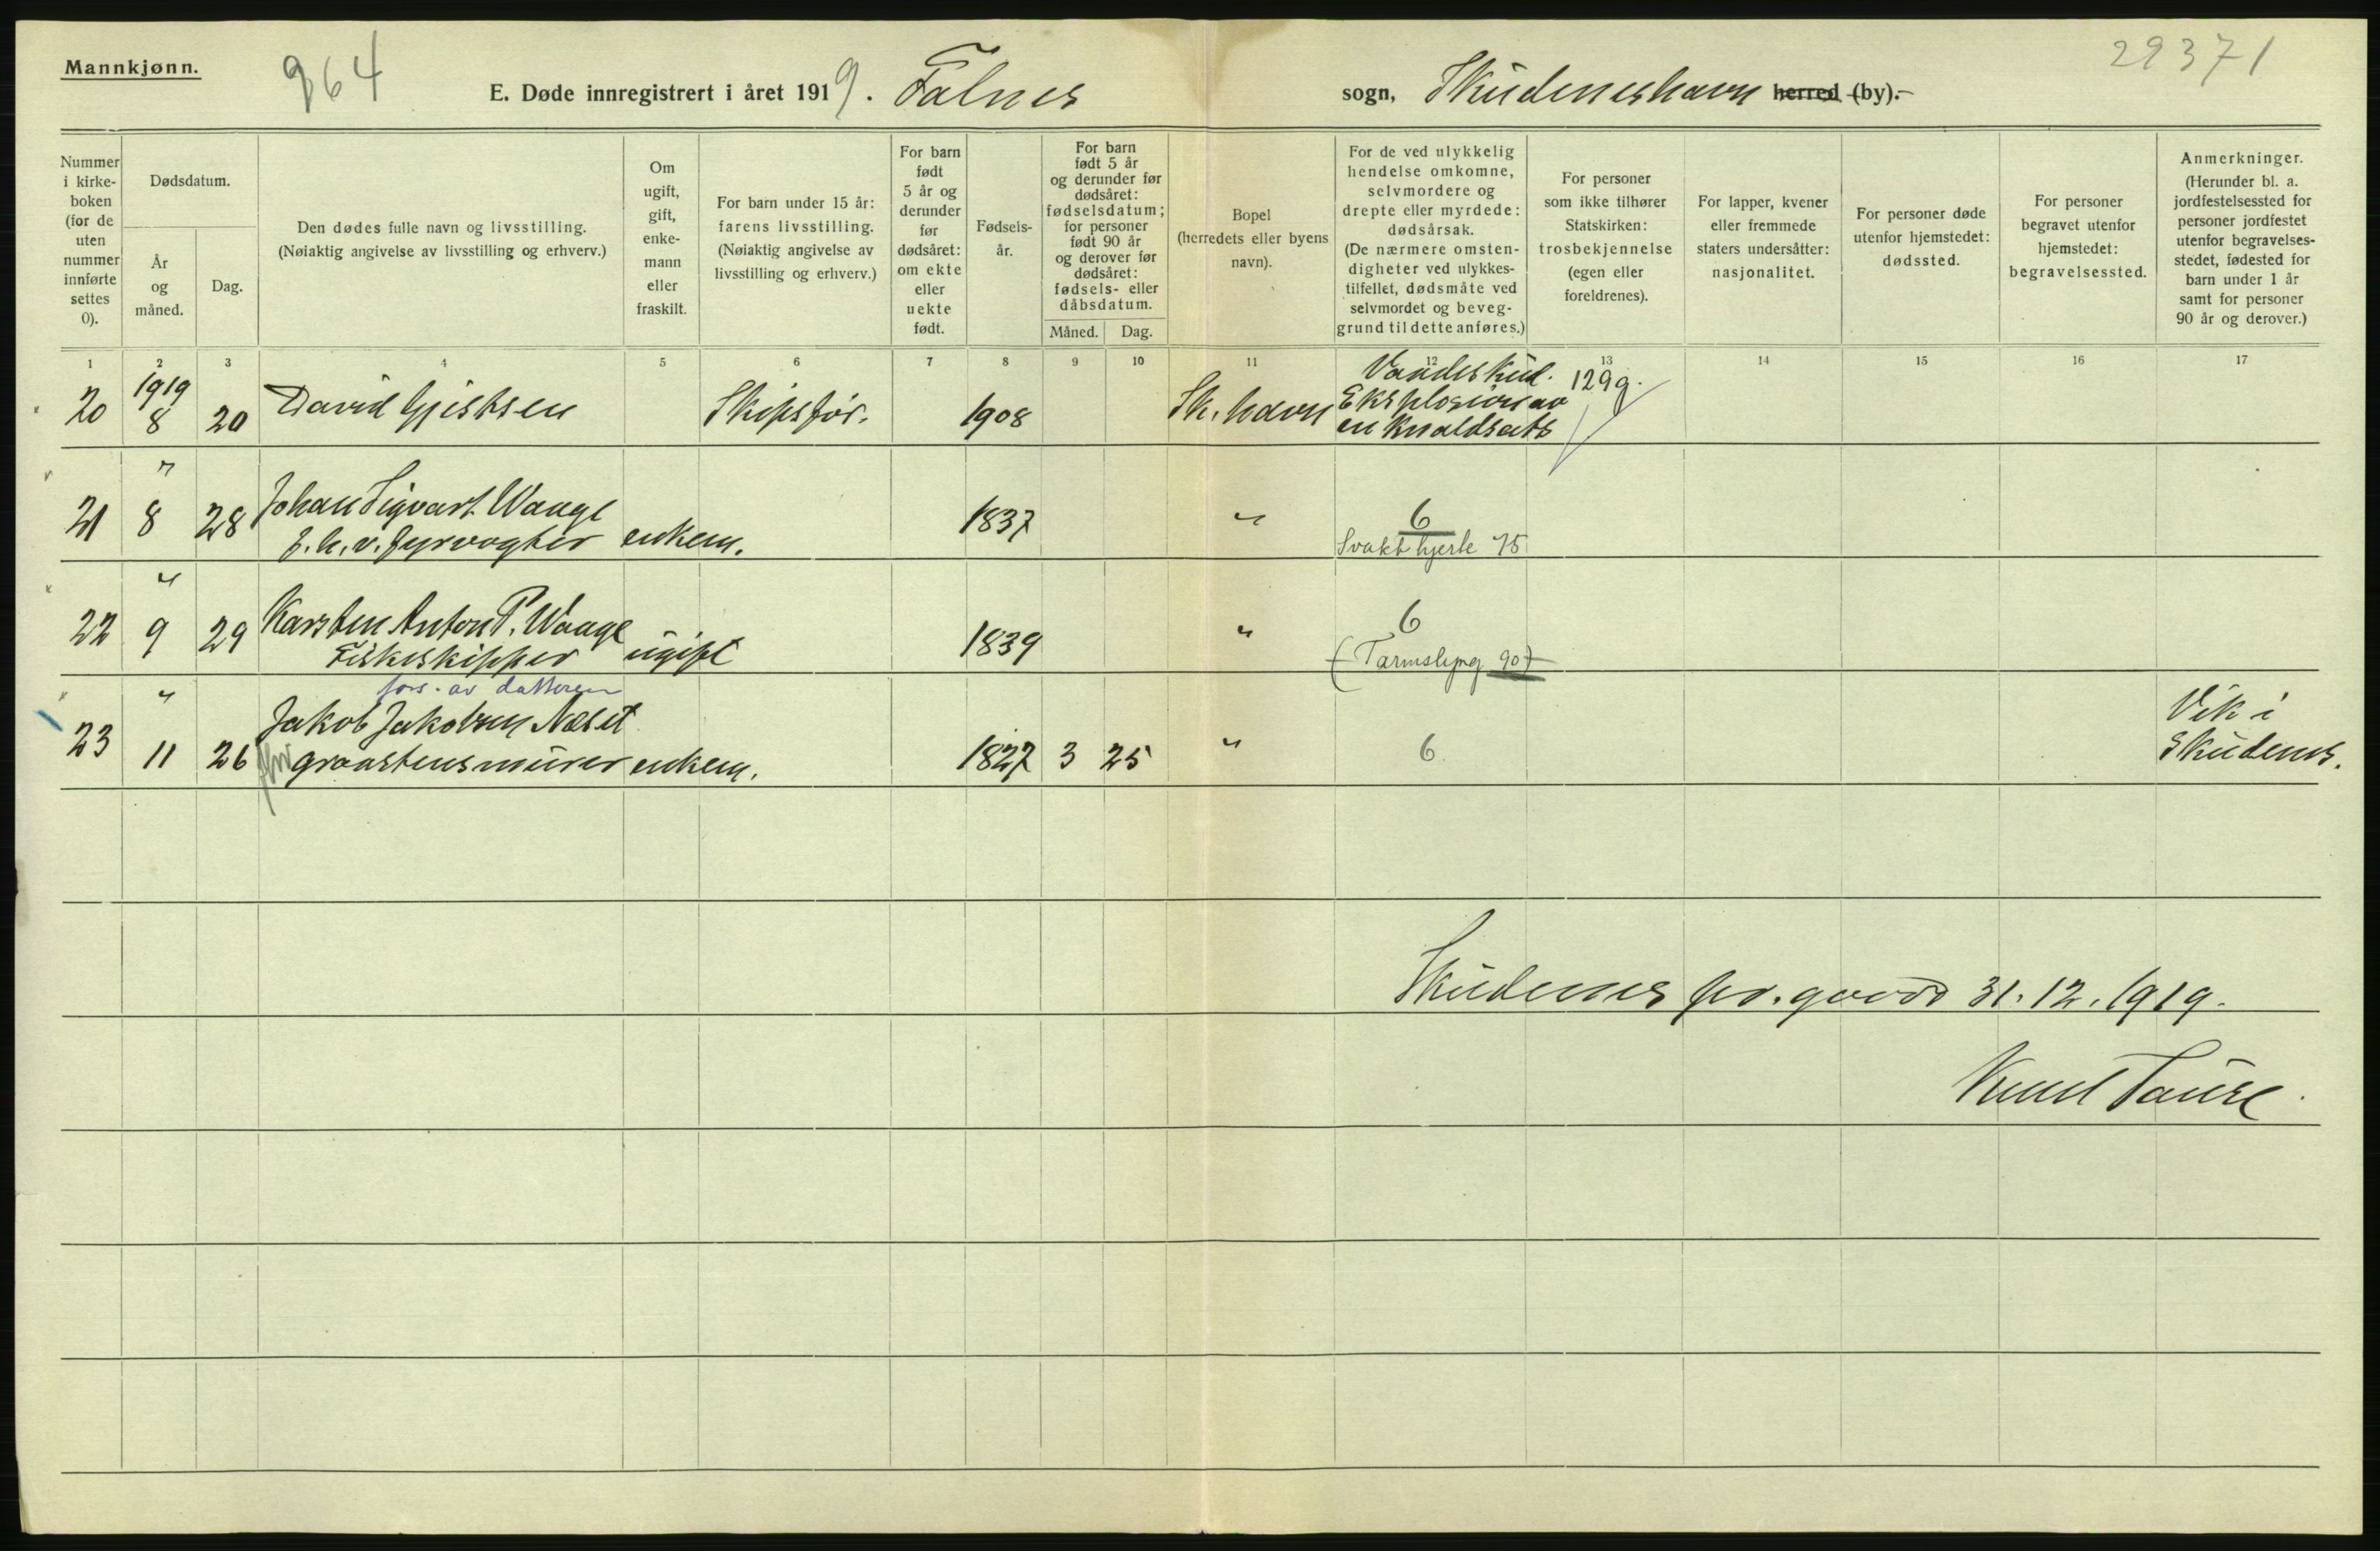 Mannkjønn.
964
29371
E. Døde innregistrert i året 1919. Falnes sogn, Skudeneshavn herred (by).
Nummer i kirke-boken (for de uten nummer innførte settes 0).
Dødsdatum.
År og måned.
Dag.
Den dødes fulle navn og livsstilling. (Nøiaktig angivelse av livsstilling og erhverv.)
Om ugift, gift, enke-mann eller fraskilt.
For barn under 15 år: farens livsstilling. (Nøiaktig angivelse av livsstilling og erhverv.)
For barn født 5 år og derunder før dødsåret: om ekte eller uekte født.
Fødsels-år.
For barn født 5 år og derunder før dødsåret: fødselsdatum; for personer født 90 år og derover før dødsåret: fødsels- eller dåbsdatum.
Måned.
Dag.
Bopel (herredets eller byens navn).
For de ved ulykkelig hendelse omkomne, selvmordere og drepte eller myrdede: dødsårsak. (De nærmere omsten-digheter ved ulykkes-tilfellet, dødsmåte ved selvmordet og beveg-grund til dette anføres.)
For personer som ikke tilhører Statskirken: trosbekjennelse (egen eller foreldrenes).
For lapper, kvener eller fremmede staters undersåtter: nasjonalitet.
For personer døde utenfor hjemstedet: dødssted.
For personer begravet utenfor hjemstedet: begravelsessted.
Anmerkninger. (Herunder bl. a. jordfestelsessted for personer jordfestet utenfor begravelses-stedet, fødested for barn under 1 år samt for personer 90 år og derover.)
1 2 3 4 5 6 7 8 9 10 11 12 13 14 15 16 17
20 1919 8 20 David Gjertsen Skipsfør. 1908 Sk. havn Vaadeskud. Eksplosion av en knaldsats 129g.
21 " 8 28 Johan Sigvart Waage
f. h. v. fyrvogter enkem. 1837 " 6
Svakt hjerte 75
22 " 9 29 Karsten Anton P. Waage
Fiskeskipper ugift 1839 " 6
(Tarmslyng 90)
fors. av datteren
23 " 11 26 Jakob Jakobsen Næset
graastensmurer enkem. 1827 3 25 " 6 Vik i Skudenes.
Skudenes pr. gaard 31.12.1919.